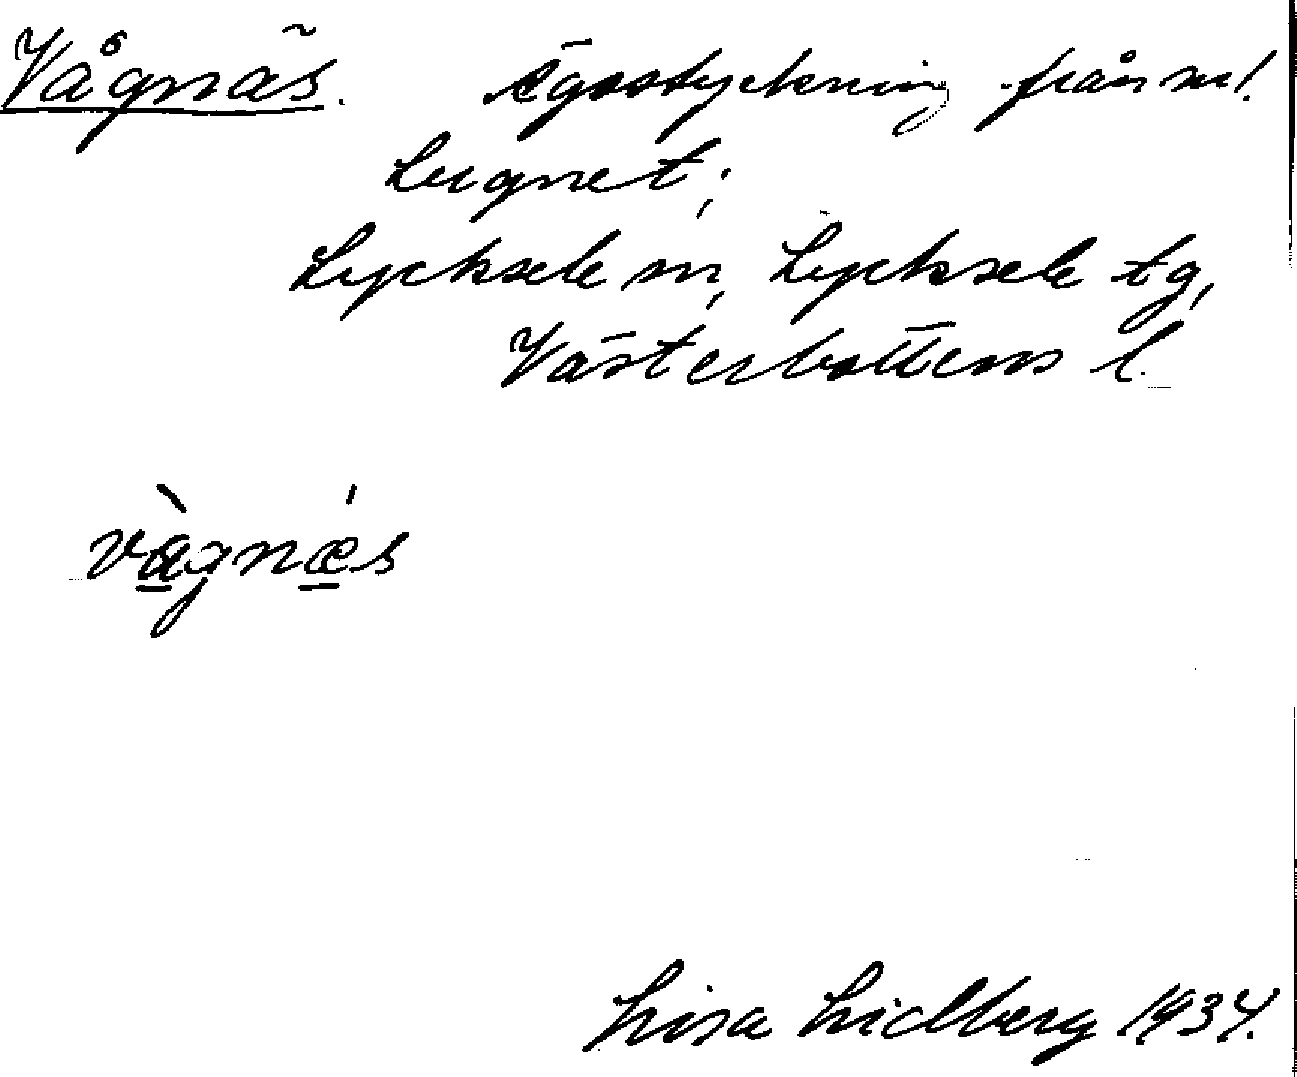 Vågnäs. Ägostyckning från nr 1.
Lugnet;
Lycksele sn, Lycksele tg,
Västerbottens l.
vàgnǽs
Lisa Lidberg 1934.